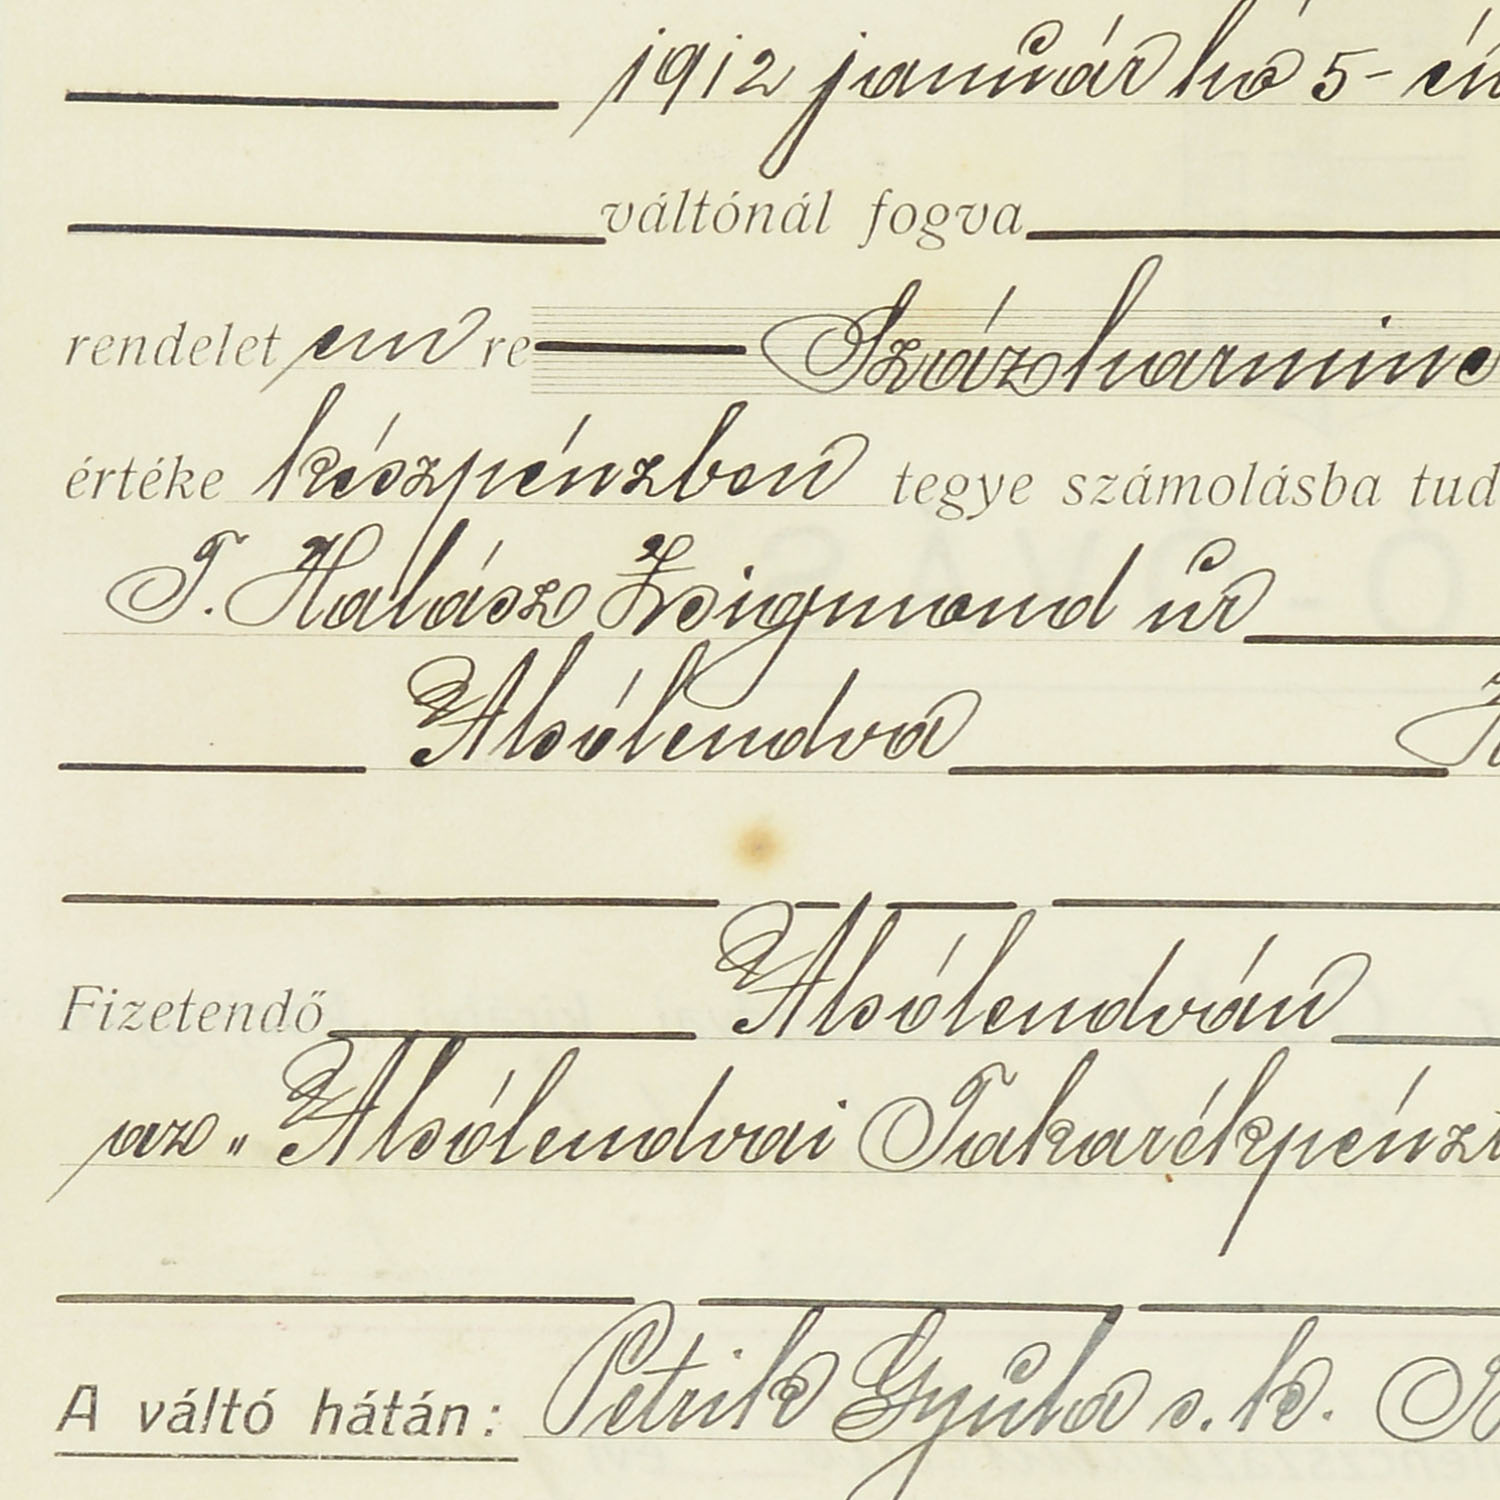 1912 január hó 5-én
váltónál fogva
rendelet em re Százharminc
értéke készpénzben tegye számolásba tud
T. Halász Zsigmond úr
Alsólendva
Fizetendő Alsólendván
az „Alsólendvai Takarékpénzt
A váltó hátán: Petrik Gyula s. k.